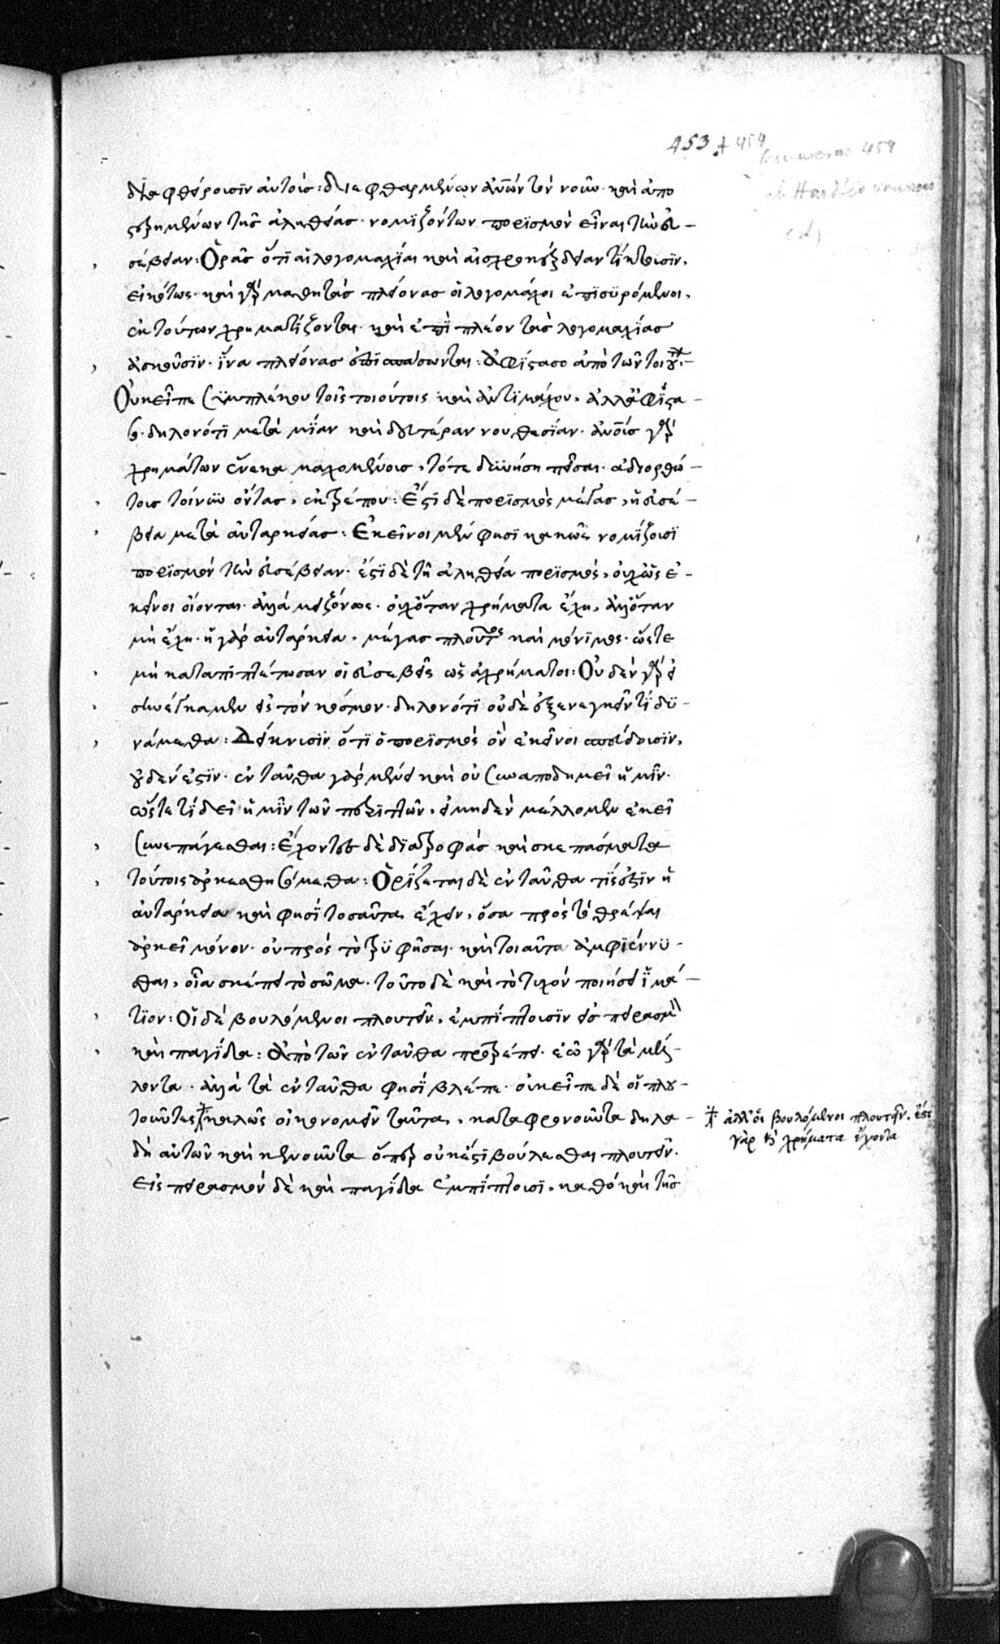 453 + 454
διαφθείρουσιν αὐτούς: διεφθαρμένων ἀνθρώπων τὸν νοῦν· καὶ ἀπε
στερημένων τῆς ἀληθείας· νομιζόντων πορισμὸν εἶναι τὴν εὐ-
σέβειαν: Ὁρᾷς ὅτι αἱ λογομαχίαι καὶ αἰσχροκέρδειαν τίκτουσιν.
εἰκότως· καὶ γὰρ μαθητὰς πλείονας οἱ λογομάχοι ἐπισυρόμενοι,
ἐκ τούτων χρηματίζονται· καὶ ἐπὶ πλέον τὰς λογομαχίας
ἀσκοῦσιν. ἵνα πλείονας ἐπισπάσωνται: Ἀφίστασο ἀπὸ τῶν τοιούτων-
Οὐκ εἶπε συμπλέκου τοῖς τοιούτοις καὶ ἀντιμάχου, ἀλλ' ἀφίστα-
σο· δηλονότι μετὰ μίαν καὶ δευτέραν νουθεσίαν. αὐτοῖς γὰρ
χρημάτων ἕνεκα μαχομένοις, τότε δυνήσῃ πεῖσαι· ἀδιορθώ-
τους τοίνυν ὄντας, ἐκτρέπου: Ἔστι δὲ πορισμὸς μέγας, ἡ εὐσέ-
βεια μετὰ αὐταρκείας: Ἐκεῖνοι μέν φησι κακῶς νομίζουσι
πορισμὸν τὴν εὐσέβειαν· ἔστι δὲ τῇ ἀληθείᾳ πορισμός, οὐχ ὡς ἐ-
κεῖνοι οἴονται· ἀλλὰ μειζόνως· οὐχ ὅταν χρήματα ἔχῃ, ἀλλ' ὅταν
μὴ ἔχῃ. ἡ γὰρ αὐτάρκεια, μέγας πλοῦτος καὶ μόνιμος· ὥστε
μὴ καταπιπτέτωσαν οἱ εὐσεβεῖς ὡς ἀχρήματοι: Οὐδὲν γὰρ εἰ
σηνέγκαμεν εἰς τὸν κόσμον· δηλονότι οὐδὲ ἐξενεγκεῖν τι δυ-
νάμεθα: Δείκνυσιν ὅτι ὁ πορισμὸς ὃν ἐκεῖνοι σπεύδουσιν,
οὐδέν ἐστιν· ἐνταῦθα γὰρ μένει καὶ οὐ συναποδημεῖ ἡμῖν.
ὥστε τί δεῖ ἡμῖν τῶν περιττῶν, εἰ μηδὲν μέλλομεν ἐκεῖ
συνεπάγεσθαι: Ἔχοντες δὲ διατροφὰς καὶ σκεπάσματα
τούτοις ἀρκεσθησόμεθα: Ὁρίζεται δὲ ἐνταῦθα τίς ἐστιν ἡ
αὐτάρκεια καὶ φησὶ τοσαῦτα ἔχειν, ὅσα πρὸς τὸ θρέψαι
ἀρκεῖ μόνον· οὐ πρὸς τὸ τρυφῆσαι. καὶ τοιαῦτα ἀμφιέννυ-
σθαι, οἷα σκέπει τὸ σῶμα. τοῦτο δὲ καὶ τὸ τυχὸν ποιήσει ἱμά-
τιον: Οἱ δὲ βουλόμενοι πλουτεῖν, ἐμπίπτουσιν εἰς πειρασμὸν
καὶ παγίδα: Ἀπὸ τῶν ἐνταῦθα προτρέπει· ἐῶ γὰρ τὰ μέλ-
λοντα· ἀλλὰ τὰ ἐνταῦθα φησὶ βλέπε· οὐκ εἶπε δὲ οἱ πλου-
τοῦντες, καλῶς οἰκονομεῖν ταῦτα, καταφρονοῦντα δηλα-
δὴ αὐτῶν καὶ κενοῦντα ὅπερ οὐκ ἔστι βούλεσθαι πλουτεῖν.
Εἰς πειρασμὸν δὲ καὶ παγίδα ἐμπίπτουσι, καθὸ καὶ τῆς
ἀλλ' οἱ βουλόμενοι πλουτεῖν. ἔστι
γὰρ τὸ χρήματα ἔχοντα